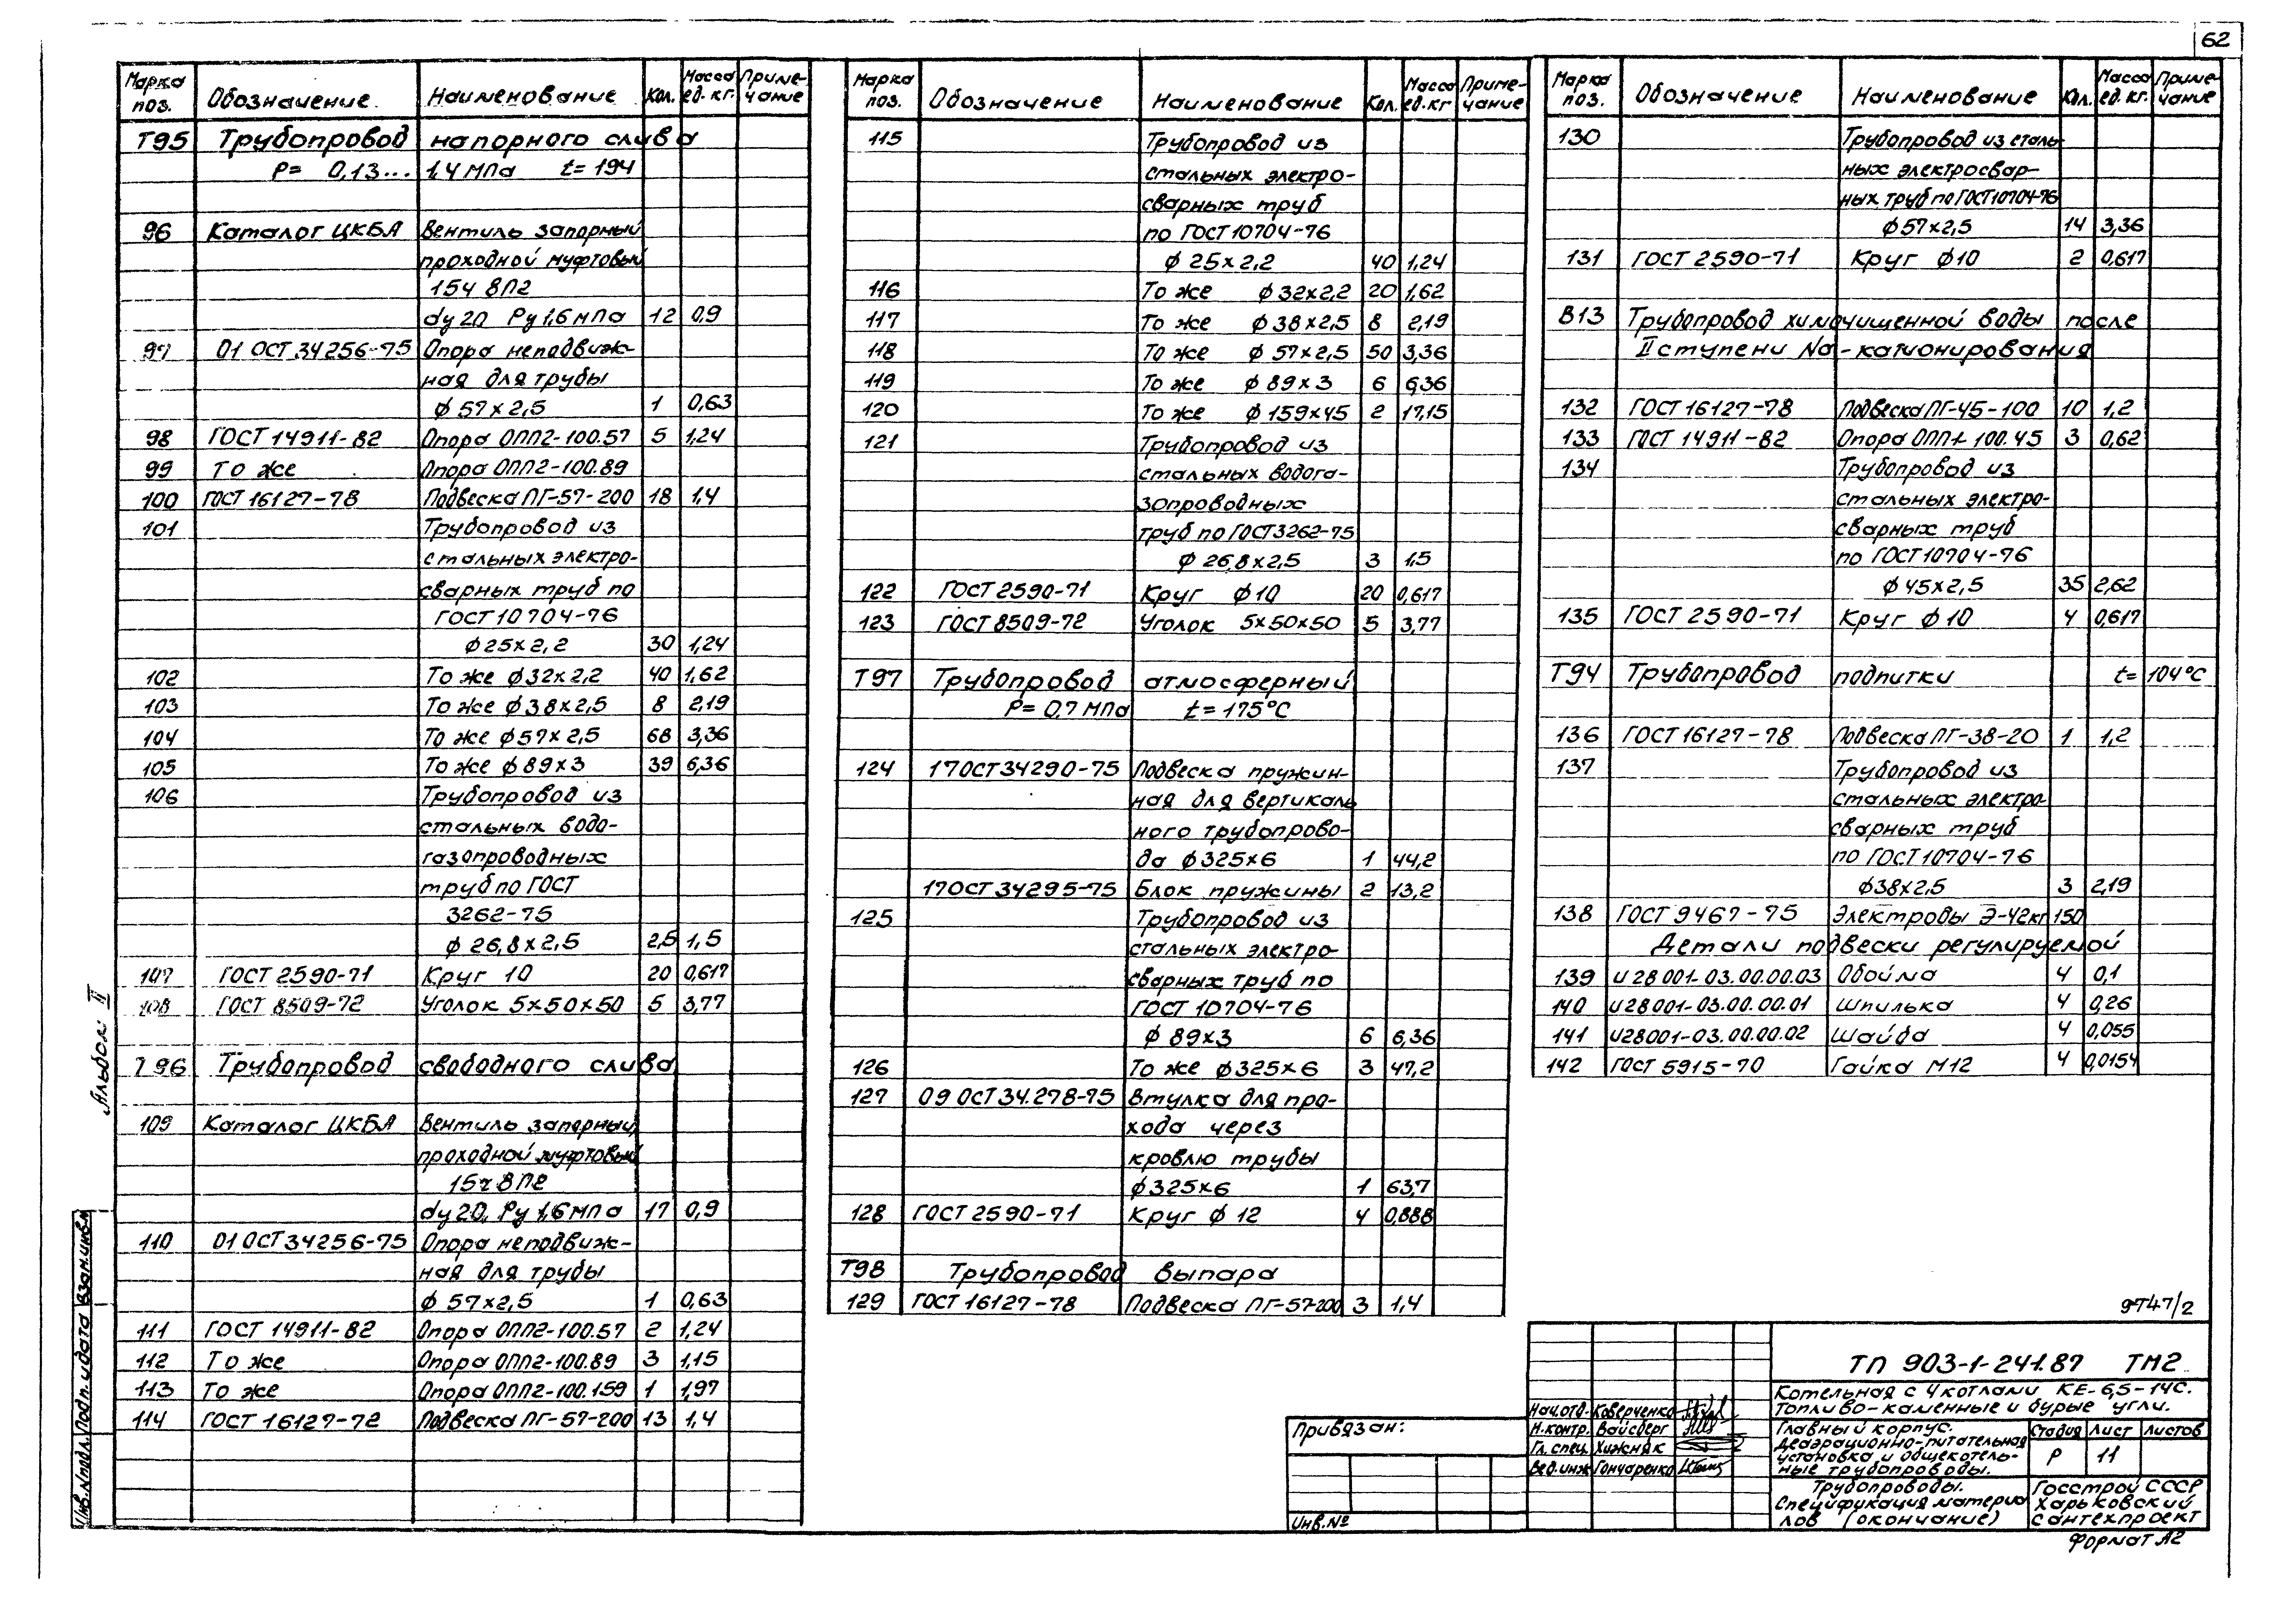 62
Марка поз. Обозначение Наименование Кол. Масса ед. кг. Приме-чание
Т95 Трубопровод напорного слива
Р= 0,13... 1,4 МПа t= 194
96 Каталог ЦКБА Вентиль запорный
проходной муфтовый
15ч 8П2
dу 20 Ру 1,6 мПа 12 0,9
97 01 ОСТ 34256-75 Опора неподвиж-
ная для трубы
ф 57×2,5 1 0,63
98 ГОСТ 14911-82 Опора ОПП2-100.57 5 1,24
99 То же Опора ОПП2-100.89
100 ГОСТ 16127-78 Подвеска ПГ-57-200 18 1,4
101 Трубопровод из
стальных электро-
сварных труб по
ГОСТ 10704-76
ф 25×2,2 30 1,24
102 То же ф 32×2,2 40 1,62
103 То же ф 38×2,5 8 2,19
104 То же ф 57×2,5 68 3,36
105 То же ф 89×3 39 6,36
106 Трубопровод из
стальных водо-
газопроводных
труб по ГОСТ
3262-75
ф 26,8×2,5 2,5 1,5
107 ГОСТ 2590-71 Круг 10 20 0,617
108 ГОСТ 8509-72 Уголок 5×50×50 5 3,77
Т96 Трубопровод свободного слива
109 Каталог ЦКБА Вентиль запорный
проходной муфтовый
15ч 8П2
dу 20, Ру 1,6 мПа 17 0,9
110 01 ОСТ 34256-75 Опора неподвиж-
ная для трубы
ф 57×2,5 1 0,63
111 ГОСТ 14911-82 Опора ОПП2-100.57 2 1,24
112 То же Опора ОПП2-100.89 3 1,15
113 То же Опора ОПП2-100.159 1 1,97
114 ГОСТ 16127-72 Подвеска ПГ-57-200 13 1,4
Марка поз. Обозначение Наименование Кол. Масса ед. кг Приме-чание
115 Трубопровод из
стальных электро-
сварных труб
по ГОСТ 10704-76
ф 25×2,2 40 1,24
116 То же ф 32×2,2 20 1,62
117 То же ф 38×2,5 8 2,19
118 То же ф 57×2,5 50 3,36
119 То же ф 89×3 6 6,36
120 То же ф 159×45 2 17,15
121 Трубопровод из
стальных водога-
зопроводных
труб по ГОСТ 3262-75
ф 26,8×2,5 3 1,5
122 ГОСТ 2590-71 Круг ф 10 20 0,617
123 ГОСТ 8509-72 Уголок 5×50×50 5 3,77
Т97 Трубопровод атмосферный
Р= 0,7 МПа t= 175°С
124 17 ОСТ 34290-75 Подвеска пружин-
ная для вертикаль
ного трубопрово-
да ф 325×6 1 44,2
17 ОСТ 34295-75 Блок пружины 2 13,2
125 Трубопровод из
стальных электро-
сварных труб по
ГОСТ 10704-76
ф 89×3 6 6,36
126 То же ф 325×6 3 47,2
127 09 ОСТ 34.278-75 Втулка для про-
хода через
кровлю трубы
ф 325×6 1 63,7
128 ГОСТ 2590-71 Круг ф 12 4 0,888
Т98 Трубопровод выпара
129 ГОСТ 16127-78 Подвеска ПГ-57-200 3 1,4
Марка поз. Обозначение Наименование Кол. Масса ед. кг. Приме-чание
130 Трубопровод из сталь-
ных электросвар-
ных труб по ГОСТ 10704-76
ф 57×2,5 14 3,36
131 ГОСТ 2590-71 Круг ф 10 2 0,617
В13 Трубопровод химочищенной воды после
II ступени Na-катионирования
132 ГОСТ 16127-78 Подвеска ПГ-45-100 10 1,2
133 ГОСТ 14911-82 Опора ОПП1-100.45 3 0,62
134 Трубопровод из
стальных электро-
сварных труб
по ГОСТ 10704-76
ф 45×2,5 35 2,62
135 ГОСТ 2590-71 Круг ф 10 4 0,617
Т94 Трубопровод подпитки t= 104°С
136 ГОСТ 16127-78 Подвеска ПГ-38-20 1 1,2
137 Трубопровод из
стальных электро-
сварных труб
по ГОСТ 10704-76
ф 38×2,5 3 2,19
138 ГОСТ 9467-75 Электроды Э-42 кг 150
Детали подвески регулируемой
139 И 28 001-03.00.00.03 Обойма 4 0,1
140 И28001-03.00.00.01 Шпилька 4 0,26
141 И28001-03.00.00.02 Шайба 4 0,055
142 ГОСТ 5915-70 Гайка М12 4 0,0154
Альбом II
Инв.№подл. Подп. и дата Взам.инв.№
9747/2
Привязан:
Инв.№
ТП 903-1-241.87 ТМ2
Котельная с 4 котлами КЕ-6,5-14С.
Топливо-каменные и бурые угли.
Нач.отд. Коверченко
Н.контр. Вайсберг
Гл. спец. Хижняк
Вед.инж Гончаренко
Главный корпус.
Деаэрационно-питательная
установка и общекотель-
ные трубопроводы.
Стадия Лист Листов
Р 11
Трубопроводы.
Спецификация материа
лов (окончание)
Госстрой СССР
Харьковский
сантехпроект
Формат А2